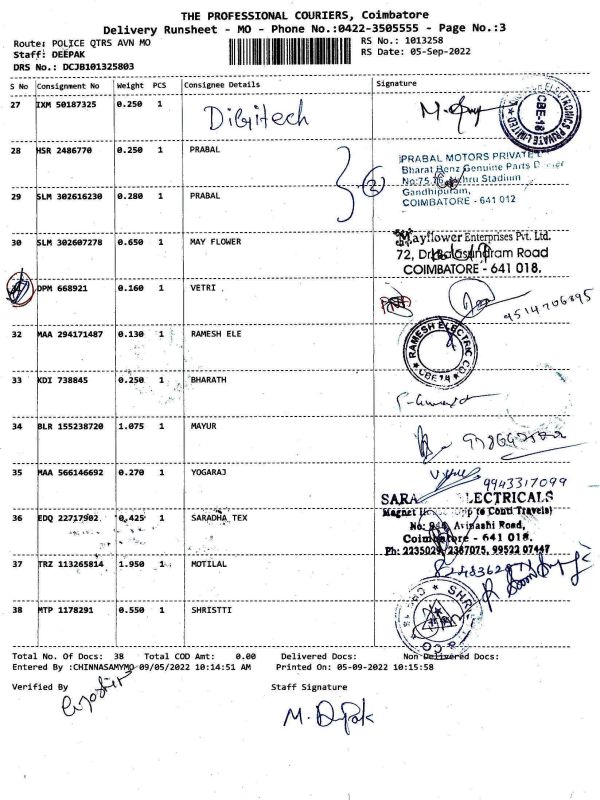 THE PROFESSIONAL COURIERS, Coimbatore
Delivery Runsheet - MO - Phone No.:0422-3505555 - Page No.:3
Route: POLICE QTRS AVN MO RS No.: 1013258
Staff: DEEPAK RS Date: 05-Sep-2022
DRS No.: DCJB101325803
S No Consignment No Weight PCS Consignee Details Signature
27 IXM 50187325 0.250 1 Digitech
ELECTRONICS PRIVATE LIMITED CBE-18
28 HSR 2486770 0.250 1 PRABAL
PRABAL MOTORS PRIVATE
Bharat Benz Genuine Parts
29 SLM 302616230 0.280 1 PRABAL (2)
Stadium
Gandhipuram,
COIMBATORE - 641 012
30 SLM 302607278 0.650 1 MAY FLOWER
Mayflower Enterprises Pvt. Ltd.
72, Road
COIMBATORE - 641 018.
DPM 668921 0.160 1 VETRI
9514706895
32 MAA 294171487 0.130 1 RAMESH ELE
RAMESH ELECTRIC CO CBE-18
33 KDI 738845 0.250 1 BHARATH
34 BLR 155238720 1.075 1 MAYUR
35 MAA 566146692 0.270 1 YOGARAJ
9943317099
ELECTRICALS
36 EDQ 22717902 0.425 1 SARADHA TEX
Magnet (Opp to Conti Travels)
Avinashi Road,
Coimbatore - 641 018.
Ph: 2235029, 2387075, 99522 07447
37 TRZ 113265814 1.950 1 MOTILAL
38 MTP 1178291 0.550 1 SHRISTTI
Total No. Of Docs: 38 Total COD Amt: 0.00 Delivered Docs: Non Delivered Docs:
Entered By :CHINNASAMYMO 09/05/2022 10:14:51 AM Printed On: 05-09-2022 10:15:58
Verified By Staff Signature
M. Dipak